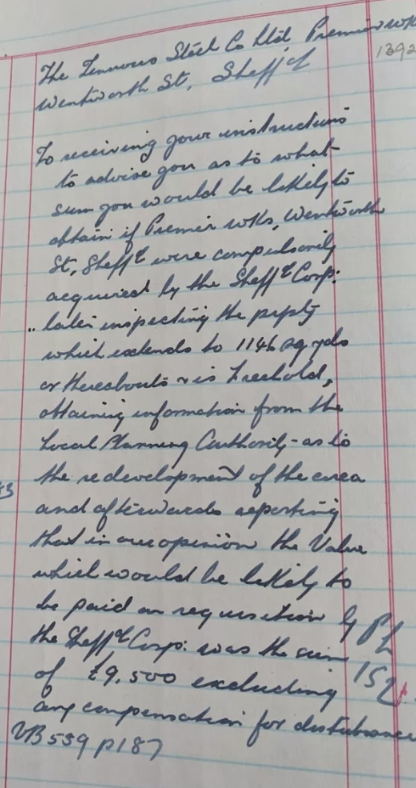 The Steel Co Ltd, Premier Wks
1392
Wentworth St, Sheffd
To receiving your instructions
to advise you as to what
sum you would be likely to
obtain if Premier Wks, Wentworth
St, Sheffd were compulsorily
acquired by the Sheffd Corp:
.. later inspecting the ppty
which extends to 1146 sq yds
or thereabouts & is freehold,
obtaining information from the
Local Planning Authority - as to
the redevelopment of the area
and afterwards reporting
that in our opinion the Value
which would be likely to
be paid on requisition by
the Sheffd Corp: was the sum
of £9,500 excluding
any compensation for disturbance
VB 559 p187